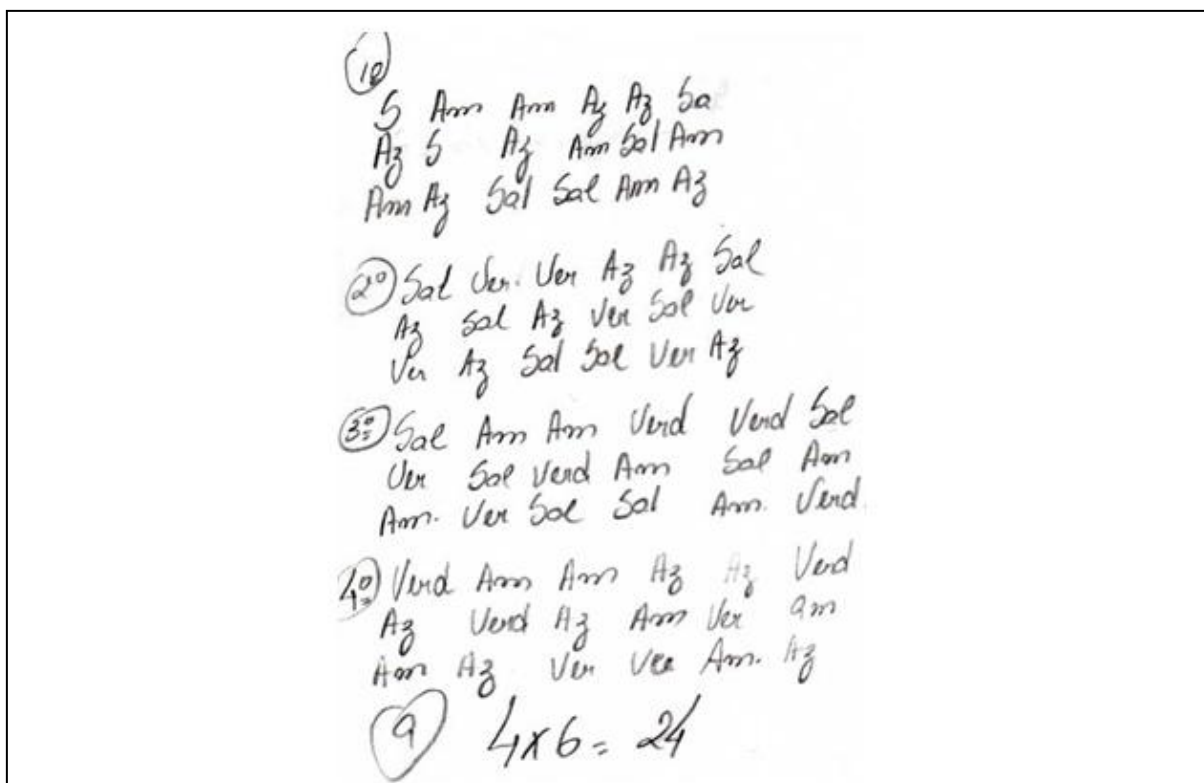 1º
S Am Am Az Az Sa
Az S Az Am Sal Am
Am Az Sal Sal Am Az
2º Sal Ver. Ver Az Az Sal
Az Sal Az Ver Sal Ver
Ver Az Sal Sal Ver Az
3º Sal Am Am Verd Verd Sal
Ver Sal Verd Am Sal Am
Am. Ver Sal Sal Am. Verd.
4º Verd Am Am Az Az Verd
Az Verd Az Am Ver am
Am Az Ver Ver Am. Az
a 4x6 = 24